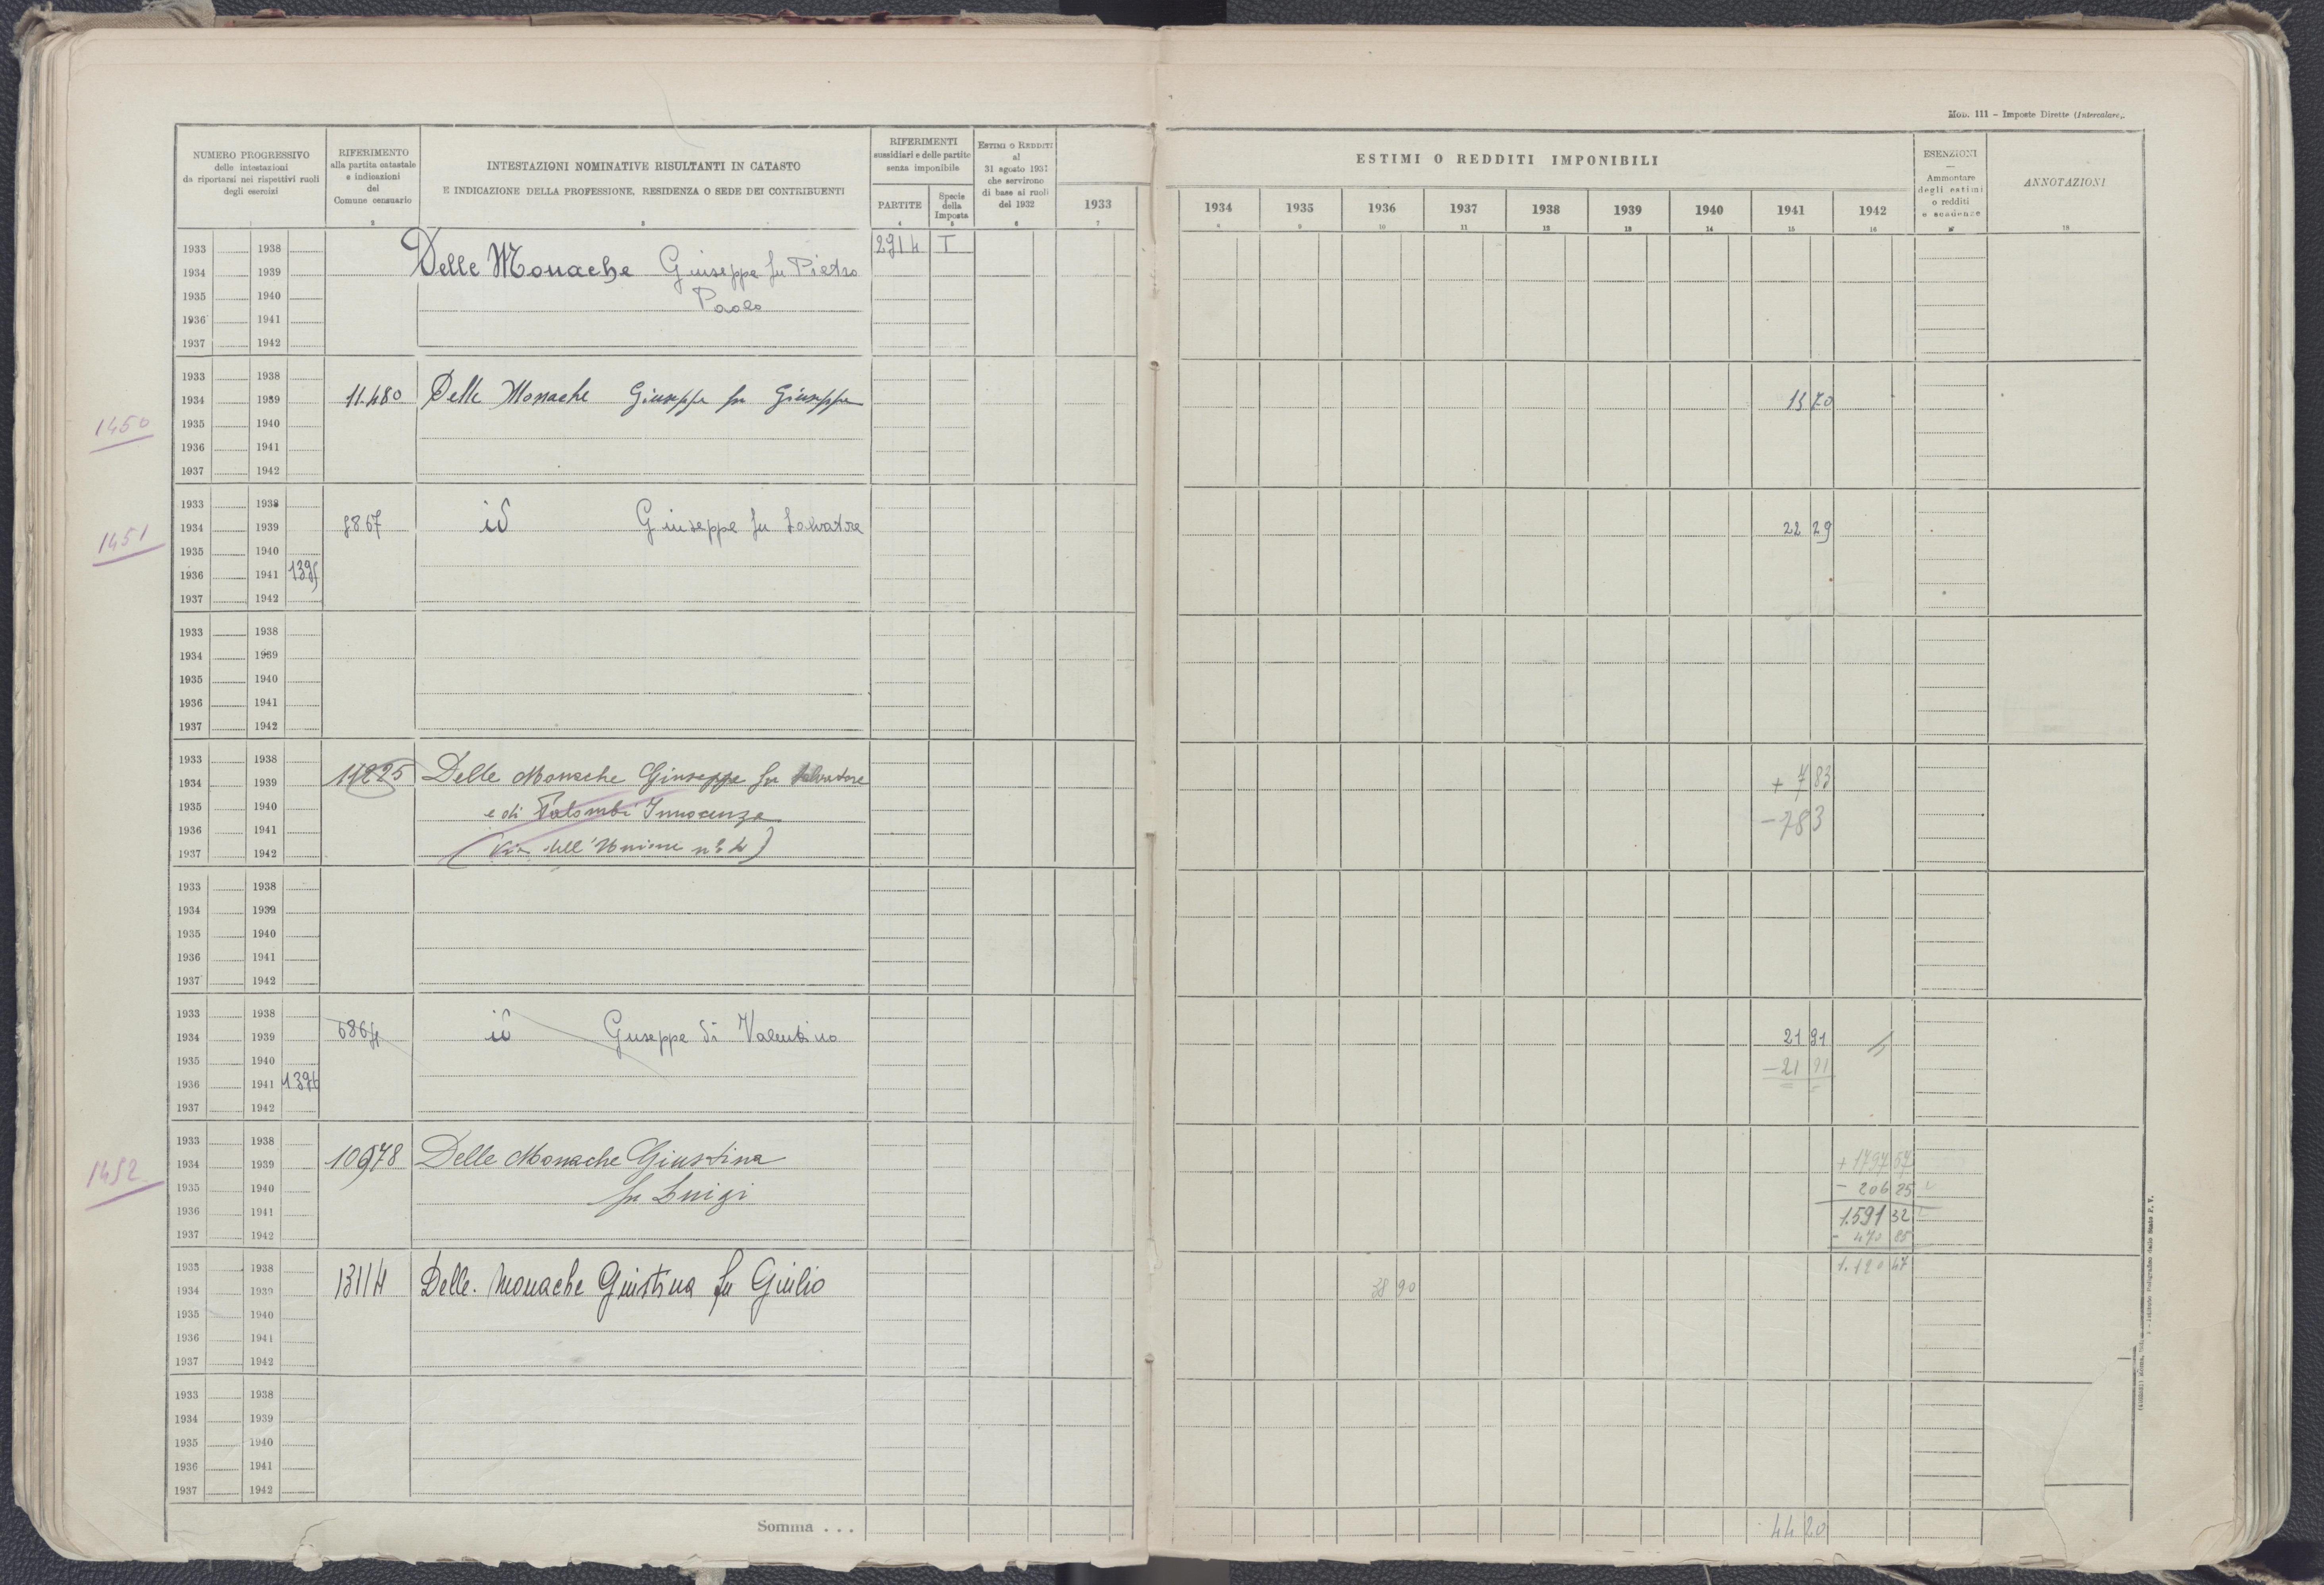 Mod. 111 – Imposte Dirette (Intercalare).
NUMERO PROGRESSIVO
delle intestazioni
da riportarsi nei rispettivi ruoli
degli esercizi
RIFERIMENTO
alla partita catastale
e indicazioni
del
Comune censuario
INTESTAZIONI NOMINATIVE RISULTANTI IN CATASTO
E INDICAZIONE DELLA PROFESSIONE, RESIDENZA O SEDE DEI CONTRIBUENTI
RIFERIMENTI
sussidiari e delle partite
senza imponibile
PARTITE
Specie
della
Imposta
ESTIMI O REDDITI
al
31 agosto 1931
che servirono
di base ai ruoli
del 1932
ESTIMI O REDDITI IMPONIBILI
1933 1934 1935 1936 1937 1938 1939 1940 1941 1942
ESENZIONI
—
Ammontare
degli estimi
o redditi
e scadenze
ANNOTAZIONI
2 3 4 5 6 7 8 9 10 11 12 13 14 15 16 17 18
1933 1938 2914 I
Delle Monache Giuseppe fu Pietro
1934 1939
1935 1940 Paolo
1936 1941
1937 1942
1933 1938
1934 1939 11.480 Delle Monache Giuseppe fu Giuseppe
1450
1935 1940
1936 1941
1937 1942
1933 1938
1934 1939 id Giuseppe fu Salvatore 22 29
1451
1935 1940
1936 1941 1395
1937 1942
1933 1938
1934 1939
1935 1940
1936 1941
1937 1942
1933 1938
1934 1939 Delle Monache Giuseppe fu Salvatore + 7 83
1935 1940 e di Palombi Innocenza
1936 1941 - 783
1937 1942 (Via dell'Unione n° 4)
1933 1938
1934 1939
1935 1940
1936 1941
1937 1942
1933 1938
1934 1939 id Giuseppe di Valentino 21 91
1935 1940 - 21 91
1936 1941 1396
1937 1942
1933 1938
1934 1939 10978 Delle Monache Giustina + 1797 57
1452
1935 1940 fu Luigi - 206 25
1936 1941 1.591 32
1937 1942 - 470 85
1933 1938 1.120 47
1934 1939 13114 Delle Monache Giustina fu Giulio 38 90
1935 1940
1936 1941
1937 1942
1933 1938
1934 1939
1935 1940
1936 1941
1937 1942
Somma . . . 44 20